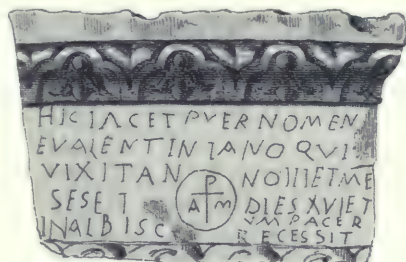 HIC IACET PVER NOMEN
E VALENTINIANO QVI
VIXIT ANNO III ET ME
SES ET DIES XVI ET
IN ALBIS CVM PACE R
RECESSIT